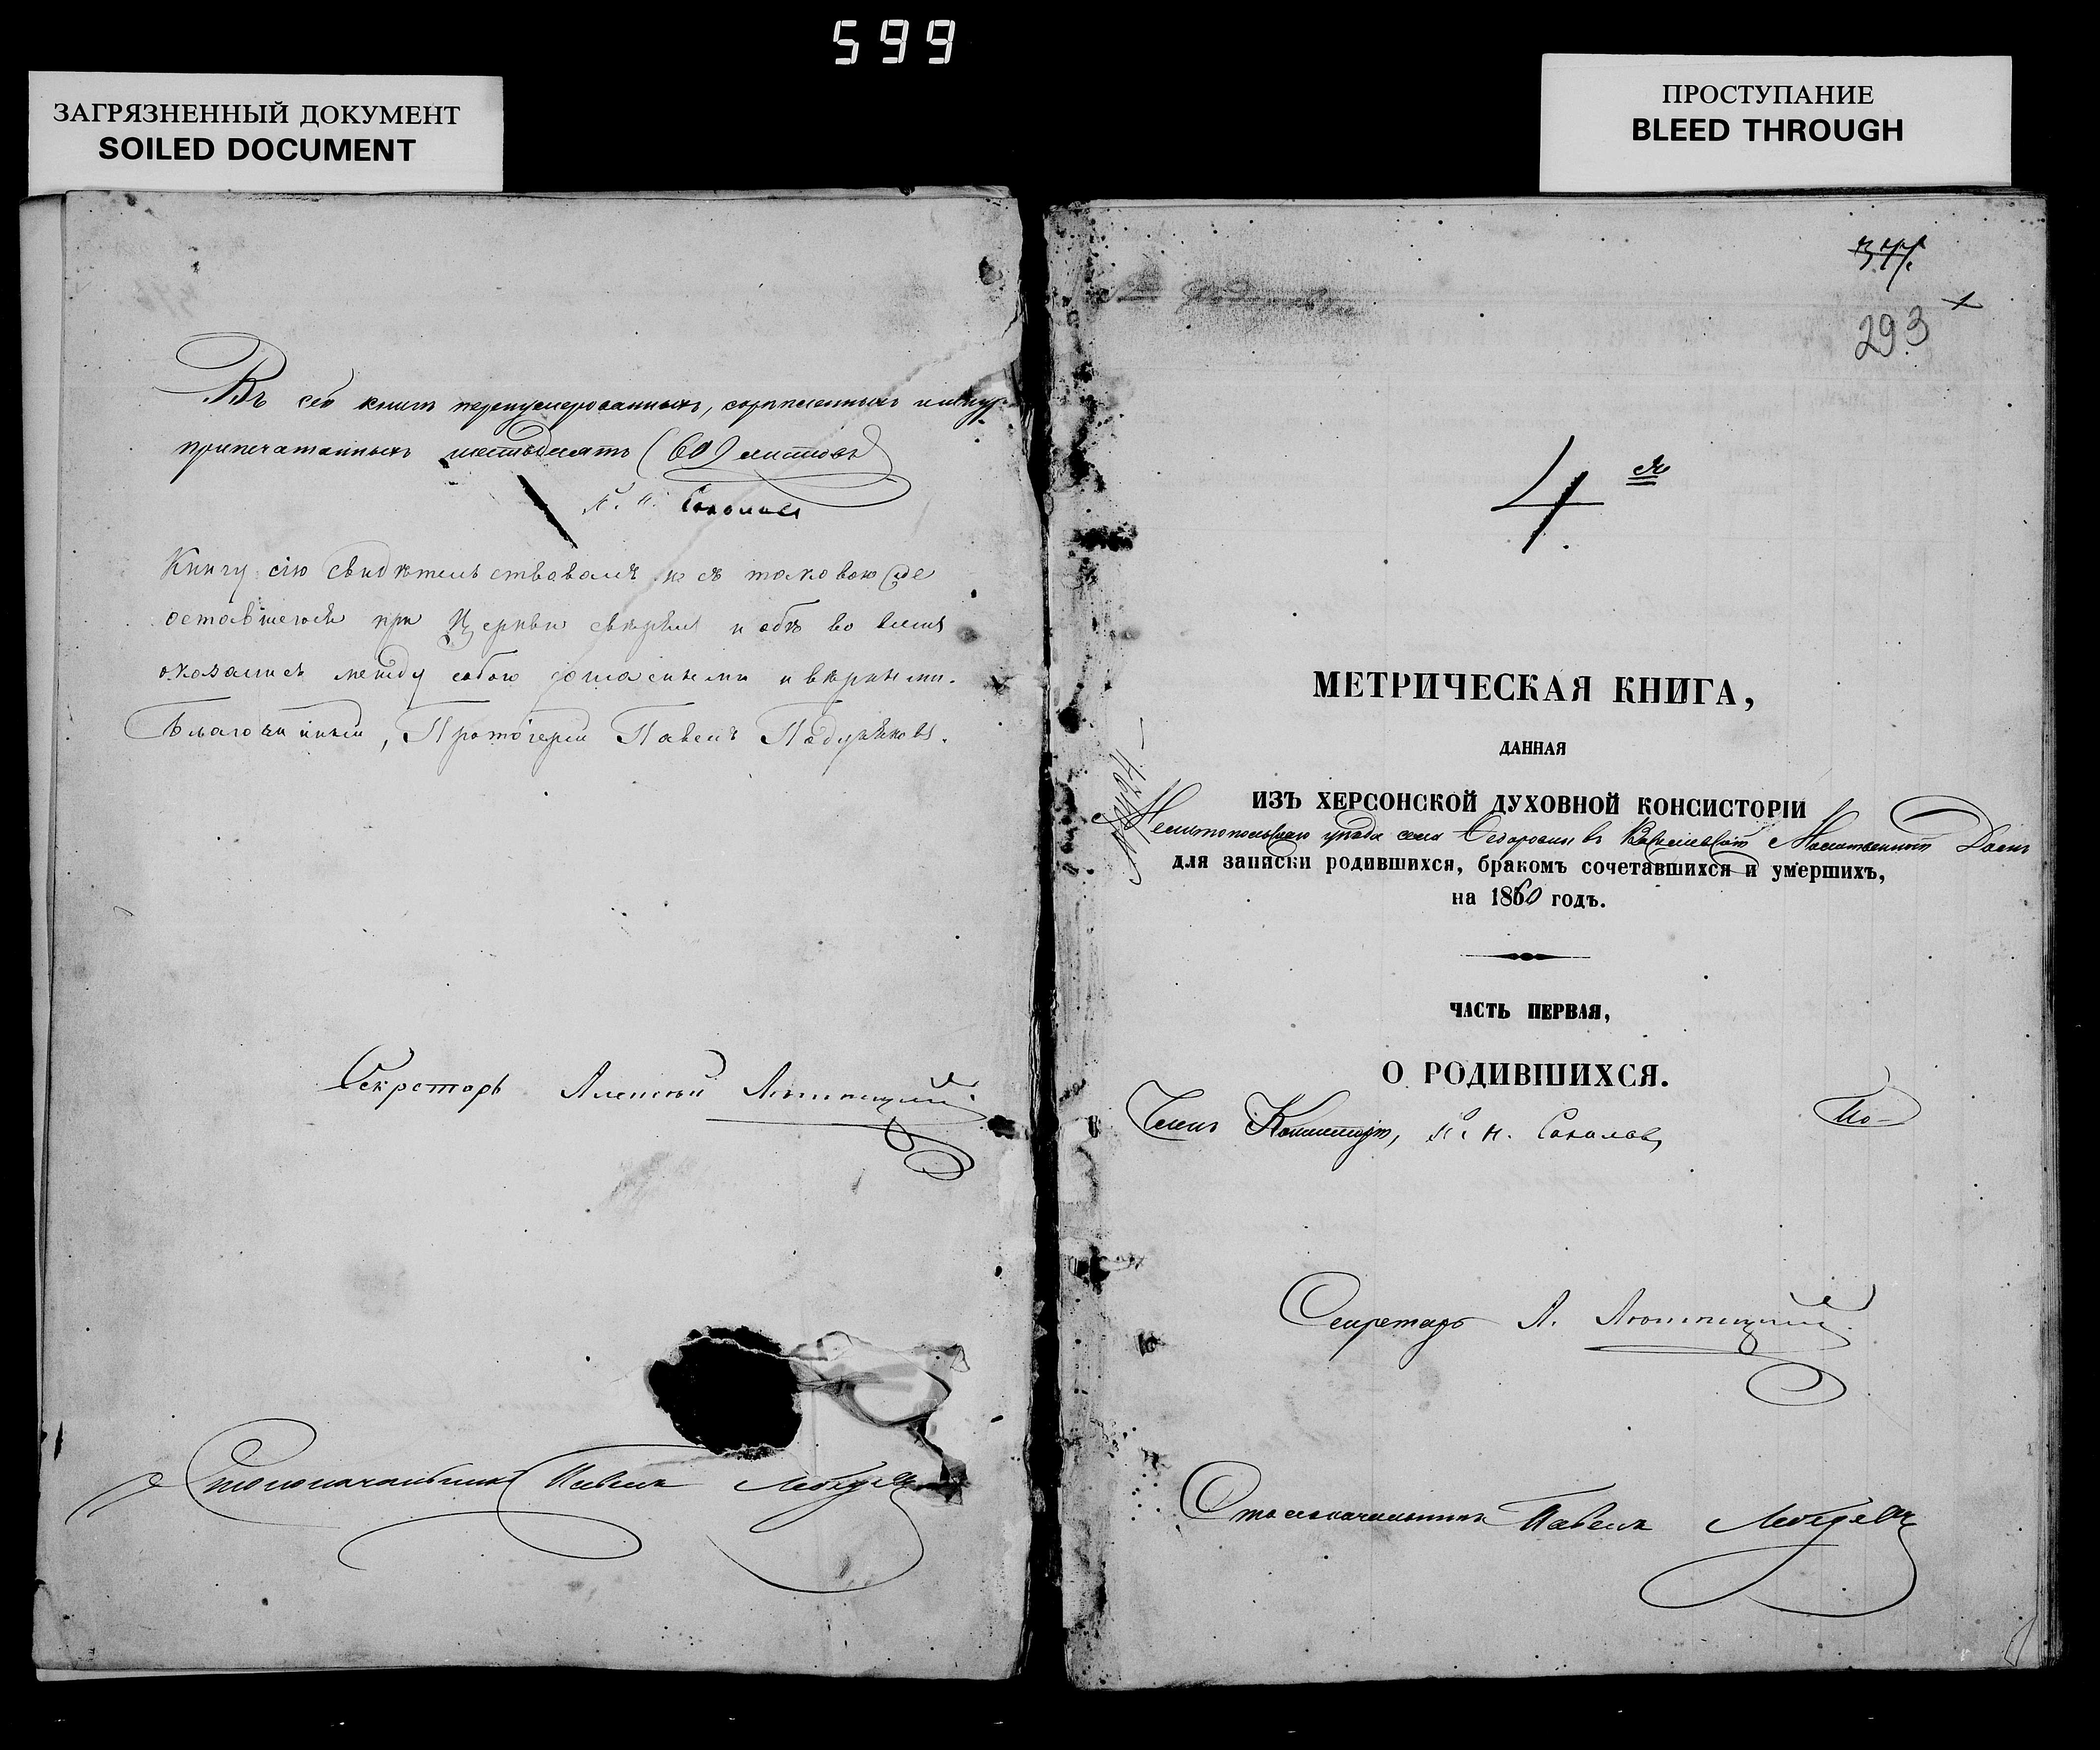 599
ЗАГРЯЗНЕННЫЙ ДОКУМЕНТ
SOILED DOCUMENT
ПРОСТУПАНИЕ
BLEED THROUGH
Въ сей книгѣ перенумерованныхъ, скрѣпленныхъ и
припечатанныхъ шестьдесятъ (60) листовъ
К. П. Соколовъ
Книгу сію свидѣтельствовалъ и съ таковою же
оставшеюся при Церкви свѣрялъ и обѣ во всемъ
оказались между собою согласными и вѣрными.
Благочинный, Протоіерей Павелъ
Секретарь Алексѣй
Столоначальникъ Павелъ Лебедевъ
293
4
МЕТРИЧЕСКАЯ КНИГА,
ДАННАЯ
ИЗЪ ХЕРСОНСКОЙ ДУХОВНОЙ КОНСИСТОРІИ
Мелитопольскаго уѣзда села въ
для записки родившихся, бракомъ сочетавшихся и умершихъ,
на 1860 годъ.
ЧАСТЬ ПЕРВАЯ,
О РОДИВШИХСЯ.
Членъ Консисторіи, К. П. Соколовъ
По-
Секретарь А.
Столоначальникъ Павелъ Лебедевъ